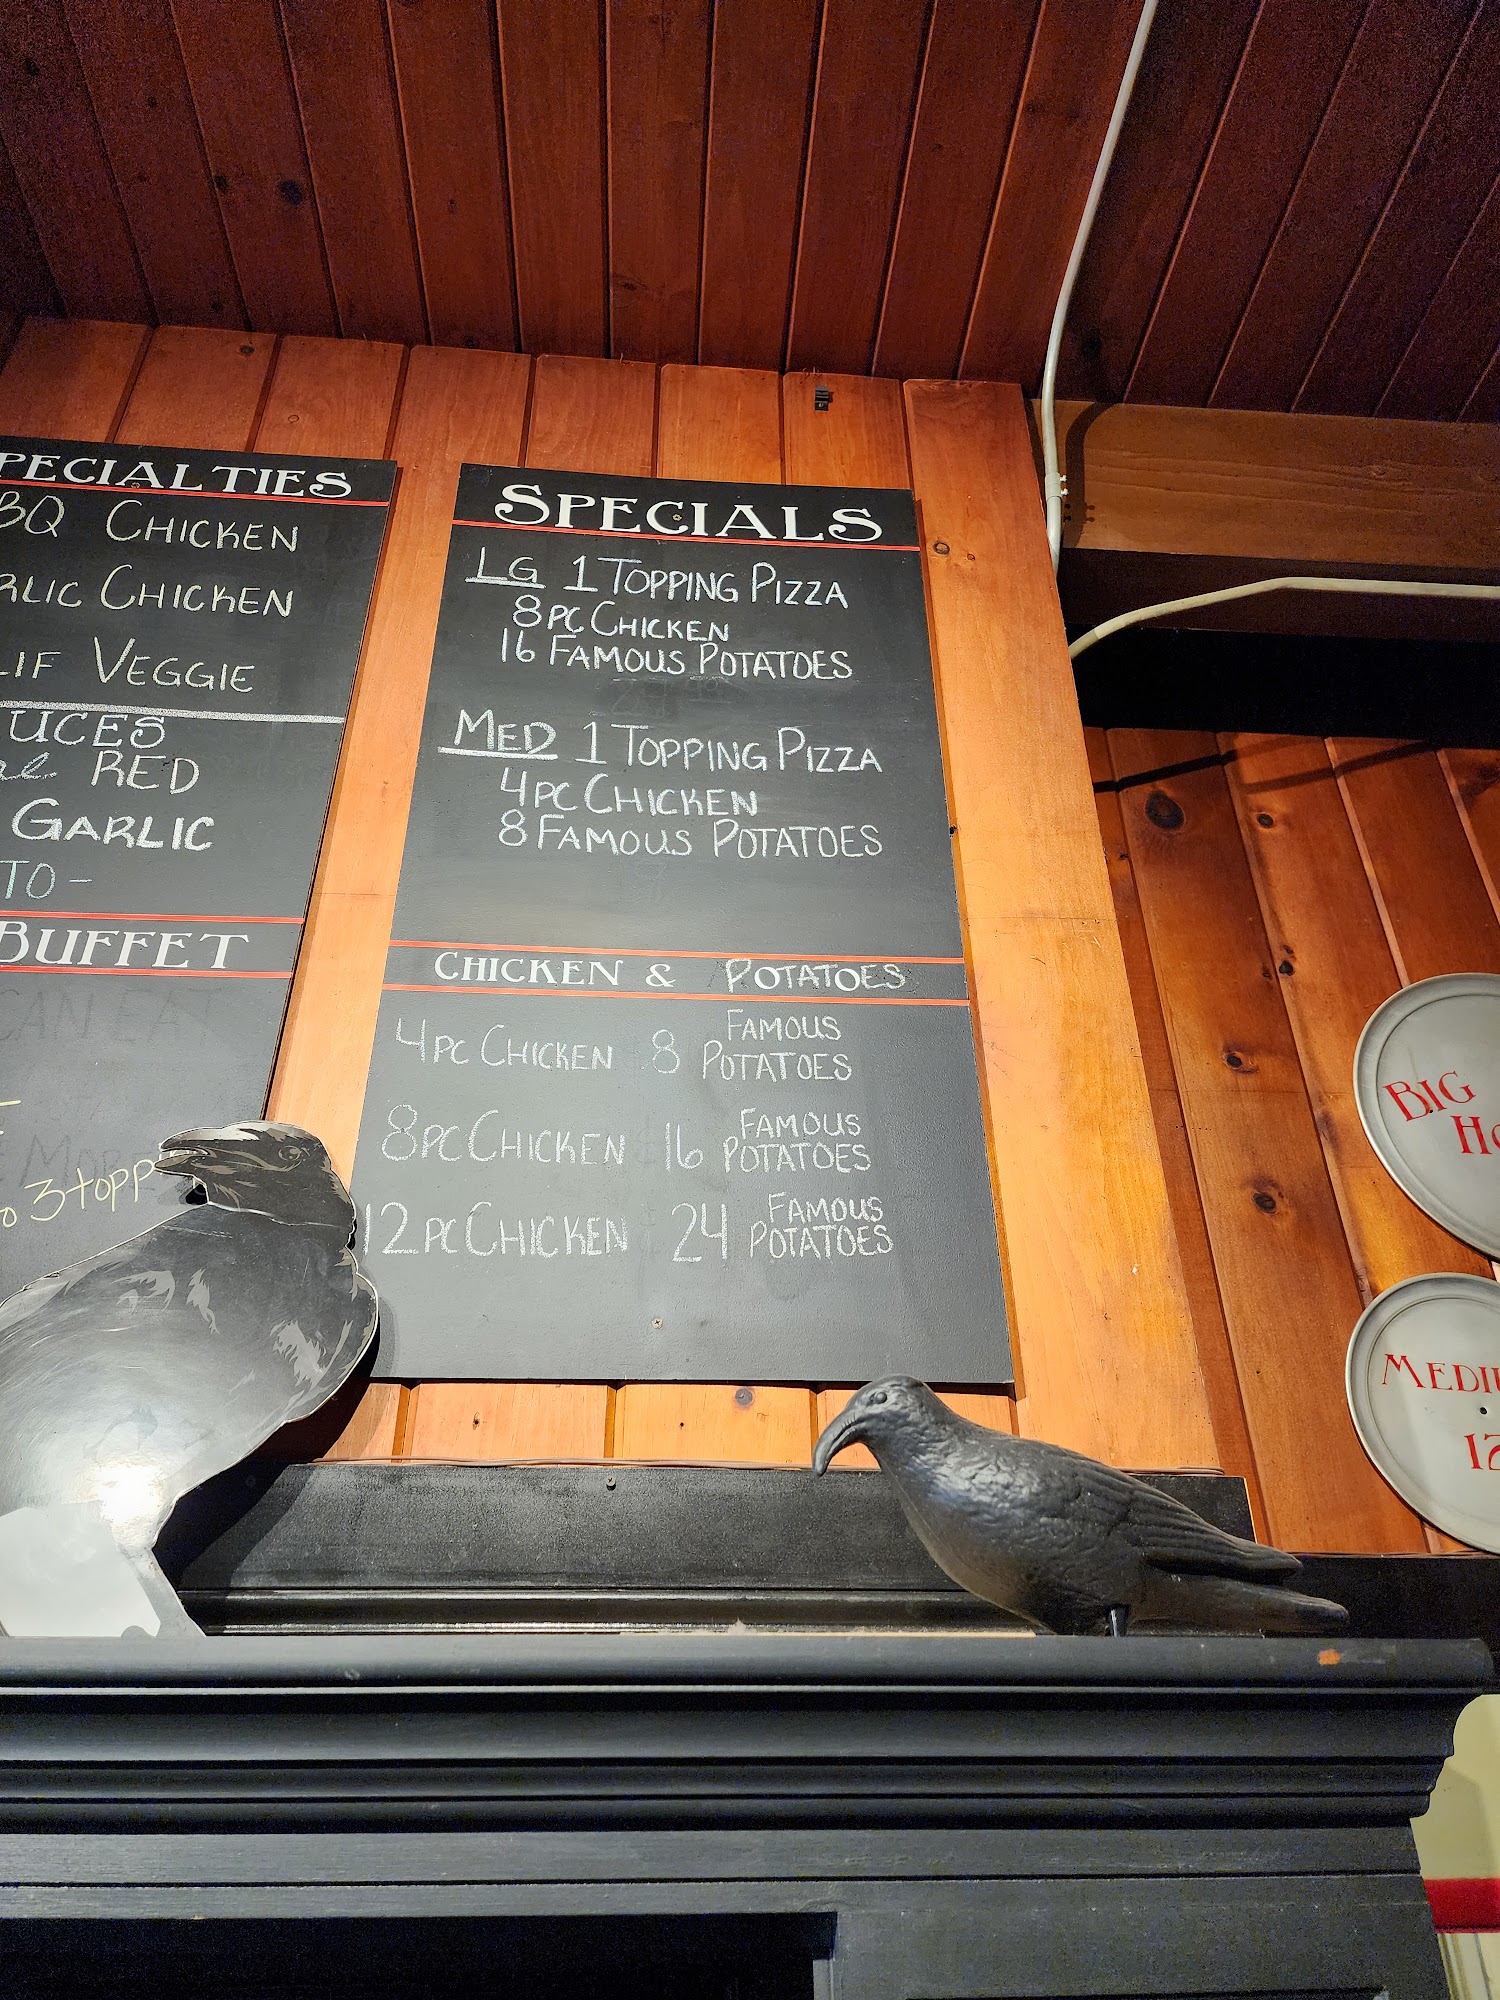 PECIALTIES
BQ CHICKEN
RLIC CHICKEN
LIF VEGGIE
UCES
RED
GARLIC
TO-
BUFFET
CAN EAT
3 topp
SPECIALS
LG 1 TOPPING PIZZA
8PC CHICKEN
16 FAMOUS POTATOES
MED 1 TOPPING PIZZA
4PC CHICKEN
8 FAMOUS POTATOES
CHICKEN & POTATOES
4PC CHICKEN 8 FAMOUS POTATOES
8PC CHICKEN 16 FAMOUS POTATOES
12PC CHICKEN 24 FAMOUS POTATOES
BIG
HO
MEDIU
12